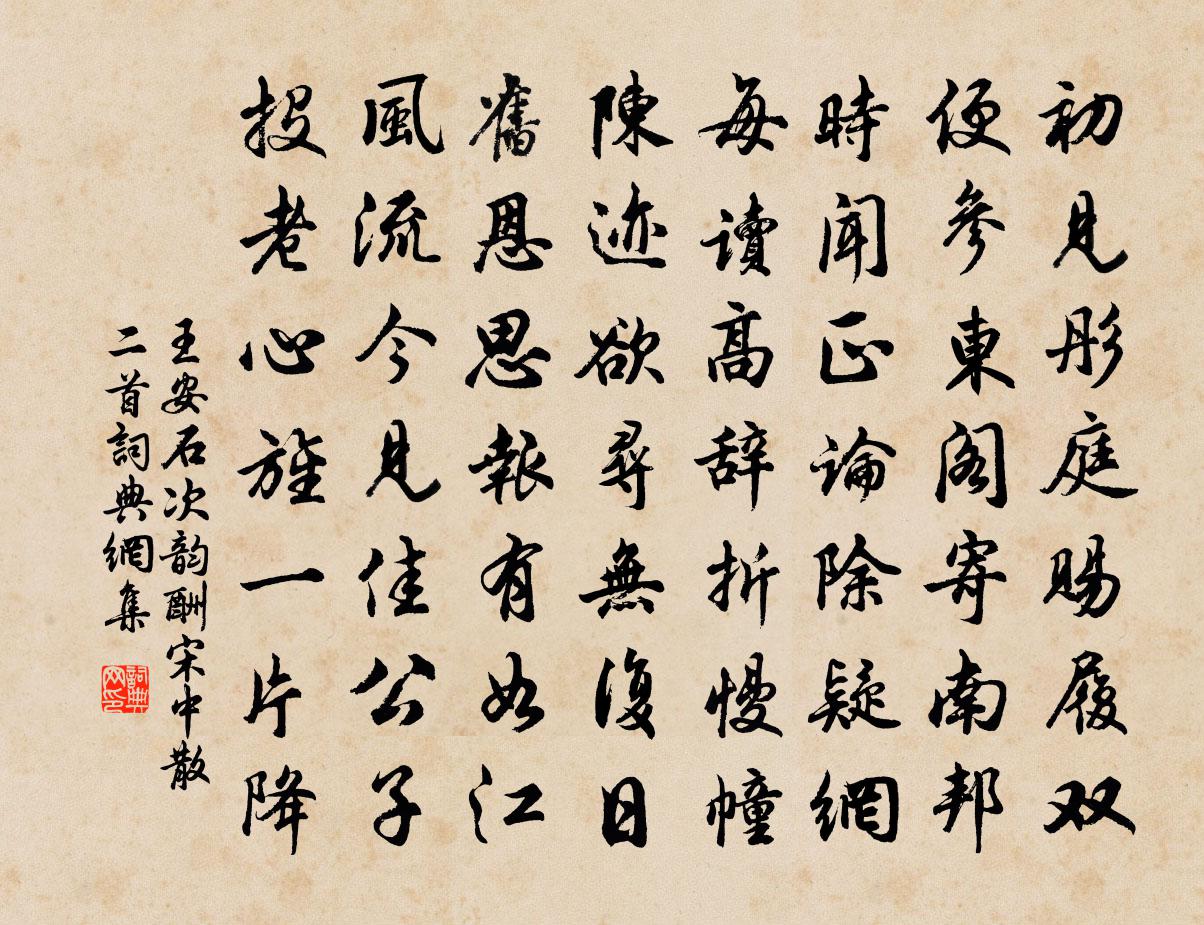 初見彤庭賜履双
便參東閣寄南邦
時聞正論除疑網
每讀髙辞折慢幢
陳迹欲尋無復日
舊恩思報有如江
風流今見佳公子
投老心旌一片降
王安石次韵酬宋中散
二首詞典網集
詞典网印